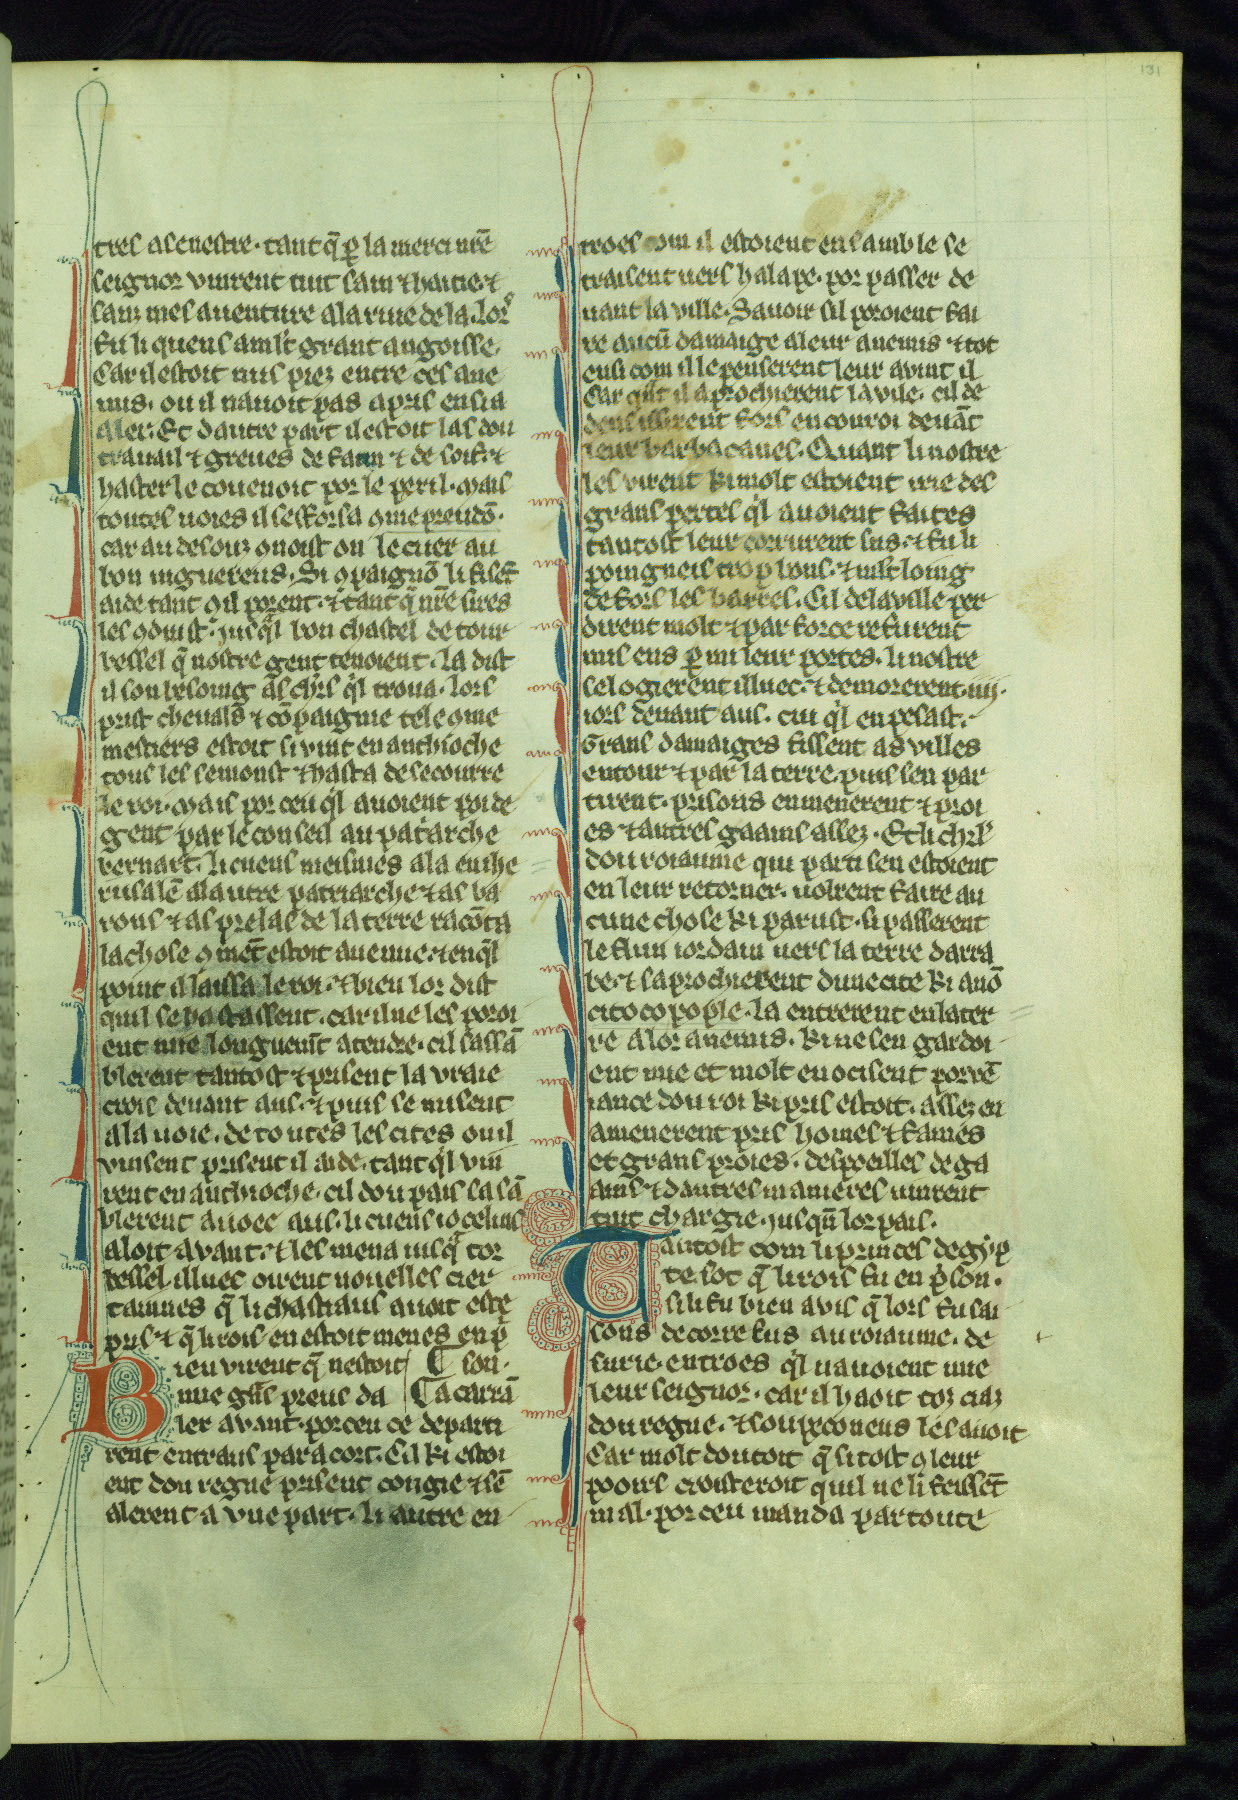 131
tres asenestre. tant q̄ ꝑ la merci nr̄e
seignor vinrent tuit sain ⁊ haitie. ⁊
sanz mes auenture ala riue de la. lors
fu li quens ausīt grant angoisse.
Car il estoit nus piez entre ces ane
mis. ou il nauoit pas apris ensi a
aler. Et dautre part il estoit las dou
trauail ⁊ greues de faim ⁊ de soif. ⁊
haster le couenoit por le peril. mais
toutes uoies il sefforsa ꝯme preudō.
car au desouz ꝯnoist on le cuer au
bon viguereus. Si ꝯpaignō li fisēt
aide tant ꝯ il porent. ⁊ tant q̄ nr̄e sires
les ꝯduist. jusq̄l bon chastel de tour
bessel q̄ nostre gent tenoient. la dist
il son besoing as chr̄s q̄l troua. lors
prist cheuals ⁊ cōpaignie tele ꝯme
mestiers estoit si vint en anthioche
tous les semonst ⁊ hasta de secourre
le roi. Mais por ceu q̄l auoient poi de
gent par le conseil au patiarche
bernart. li cuens meismes ala en ihe
rusalē ala utre patriarche ⁊ as ba
rons ⁊ as prelas de la terre racōta
la chose ꝯmēt estoit auenue. ⁊ en q̄l
point il laissa le roi. ⁊ bien lor dist
quil se hastassent. car il ne les poroi
ent mie longuemt̄ atendre. cil sassā
blerent tantost ⁊ prisent la vraie
crois deuant aus. ⁊ puis se misent
ala uoie. de toutes les cites ou il
vinsent prisent il aide. tant q̄l vin
rent en anthioche. cil dou pais sasā
blerent auoec aus. li cuens iocelins
aloit auant. ⁊ les mena iusq̄ tor
bessel. illuec oirent nouelles cier
tainnes q̄ li chastiaus auoit este
pris. ⁊ q̄ li rois en estoit menes en p̄
Bien virent q̄ nestoit ⸿ son.
mie grās preus da ⸿ a carrā
ler auant. por ceu ce departi
rent entraus par acort. Cil ki estoi
ent dou regne prisent congie ⁊ sē
alerent a vne part. li autre en
troes com il estoient ensamble se
traisent uers halape. por passer de
uant la ville. Sauoir sil poroient fai
re aucū damaige aleur anemis ⁊ tot
ensi com il le penserent leur auint il
Car qn̄t il aprochierent la vile. cil de
dens issirent fors en couroi deuāt
leur barbacanes. Quant li nostre
les virent ki molt estoient irie des
grans pertes q̄l auoient faites
tantost leur corrurent sus. ⁊ fu li
poingneis trop bons. ⁊ mlt̄ loing
defors les barres. Cil dela ville per
dirent molt ⁊ par force refurent
mis ens ꝑmi leur portes. li nostre
se logierent illuec. ⁊ demorerent. iiij.
iors deuant aus. cui q̄l en pesast.
Grans damaiges fissent as villes
entour ⁊ par la terre. puis sen par
tirent. prisons enmenerent ⁊ proi
es ⁊ autres gaains assez. Et li chr̄s
dou roiaume qui parti sen estoient
en leur retorner. uolrent faire au
cune chose ki parust. si passerent
le flun iordain uers la terre darra
be. ⁊ saprochierent dune cite ki a nō
citocopople. la entrerent en la ter
re a lor anemis. ki ne sen gardoi
ent mie et molt en ocisent por vē
iance dou roi ki pris estoit. assez en
amenerent pris homes ⁊ fames
et grans proies. despoeilles de ga
ains ⁊ dautres manieres vinrent
tuit chargie. jusqn̄ lor pais.
Tantost com li princes de gyp
te. sot q̄ li rois fu en p̄son.
si li fu bien avis q̄ lors fu sai
sons de corre sus au roiaume. de
surie. entroes q̄l nauoient mie
leur seignor. car il haoit toz ciaz
dou regne. ⁊ souspeconeus les auoit
Car molt doutoit q̄ si tost ꝯ leur
pooirs croisteroit quil ne li feissēt
mal. por ceu manda par toute